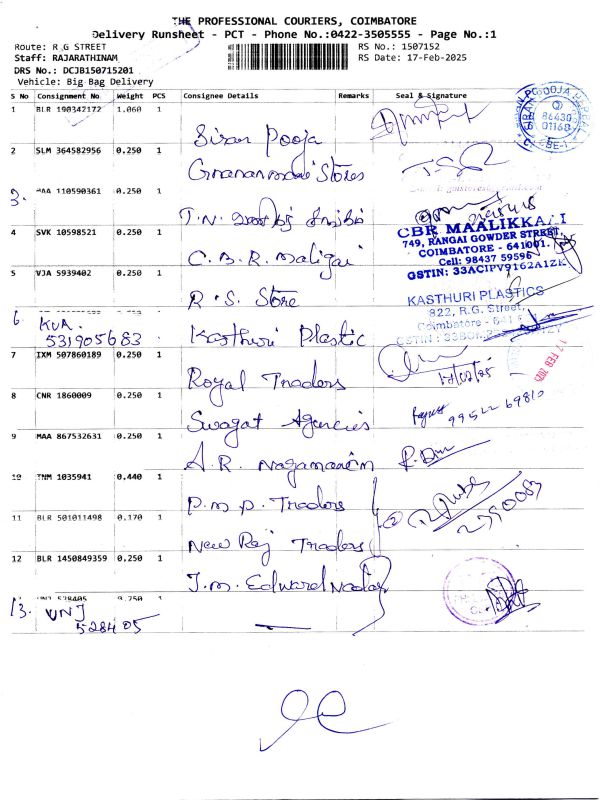 THE PROFESSIONAL COURIERS, COIMBATORE
Delivery Runsheet - PCT - Phone No.:0422-3505555 - Page No.:1
Route: R G STREET
RS No.: 1507152
Staff: RAJARATHINAM
RS Date: 17-Feb-2025
DRS No.: DCJB150715201
Vehicle: Big Bag Delivery
S No Consignment No Weight PCS Consignee Details Remarks Seal & Signature
1 BLR 190342172 1.060 1
2 SLM 364582956 0.250 1 Stores
3. MAA 110590361 0.250 1 T.N.
4 SVK 10598521 0.250 1 C.B.R. Maligai
CBR MAALIKKAI
749, RANGAI GOWDER STREET,
COIMBATORE - 641001.
Cell: 98437 59596
GSTIN: 33ACIPV9162A1ZK
5 VJA 5939402 0.250 1 R.S. Store
KASTHURI PLASTICS
822, R.G. Street
Coimbatore - 641
6. KUA 531905683 Kasthuri Plastic
7 IXM 507860189 0.250 1 Royal Traders
17/02/25
17 FEB 2025
8 CNR 1860009 0.250 1 Swagat Agencies
99522 69810
9 MAA 867532631 0.250 1 A.R.
10 TNM 1035941 0.440 1 P.M.P. Traders
11 BLR 501011498 0.170 1 New Raj Traders
2390083
12 BLR 1450849359 0.250 1 J.M. Edward Nadar
13. VNJ 528405 0.750 1